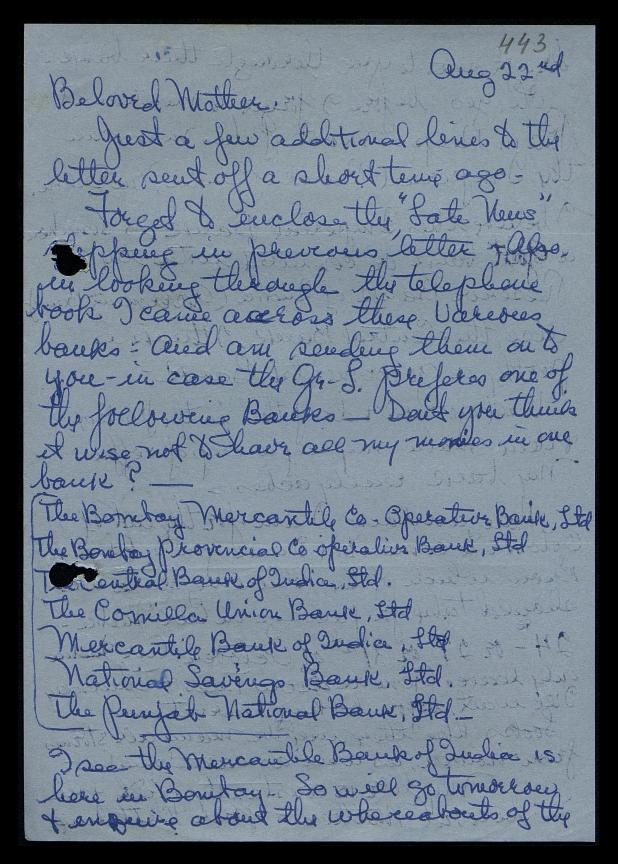 443
Aug 22nd
Beloved Mother.
Just a few additional lines to the
letter sent off a short time ago -
Forgot to enclose the "Late News"
clipping in previous letter + Also.
in looking through the telephone
book I came across these various
banks - and am sending them on to
you - in case the Gr-S. preferes one of
the following Banks — Dont you think
it wise not to have all my monies in one
bank? —
The Bombay Mercantile Co-Operative Bank, Ltd
The Bombay Provincial Co operative Bank, Ltd
The Central Bank of India, Ltd.
The Comilla Union Bank, Ltd
Mercantile Bank of India, Ltd
National Savings Bank, Ltd.
The Punjab National Bank, Ltd. -
I see the Mercantile Bank of India is
here in Bombay - So will go tomorrow
+ enquire about the whereabouts of the